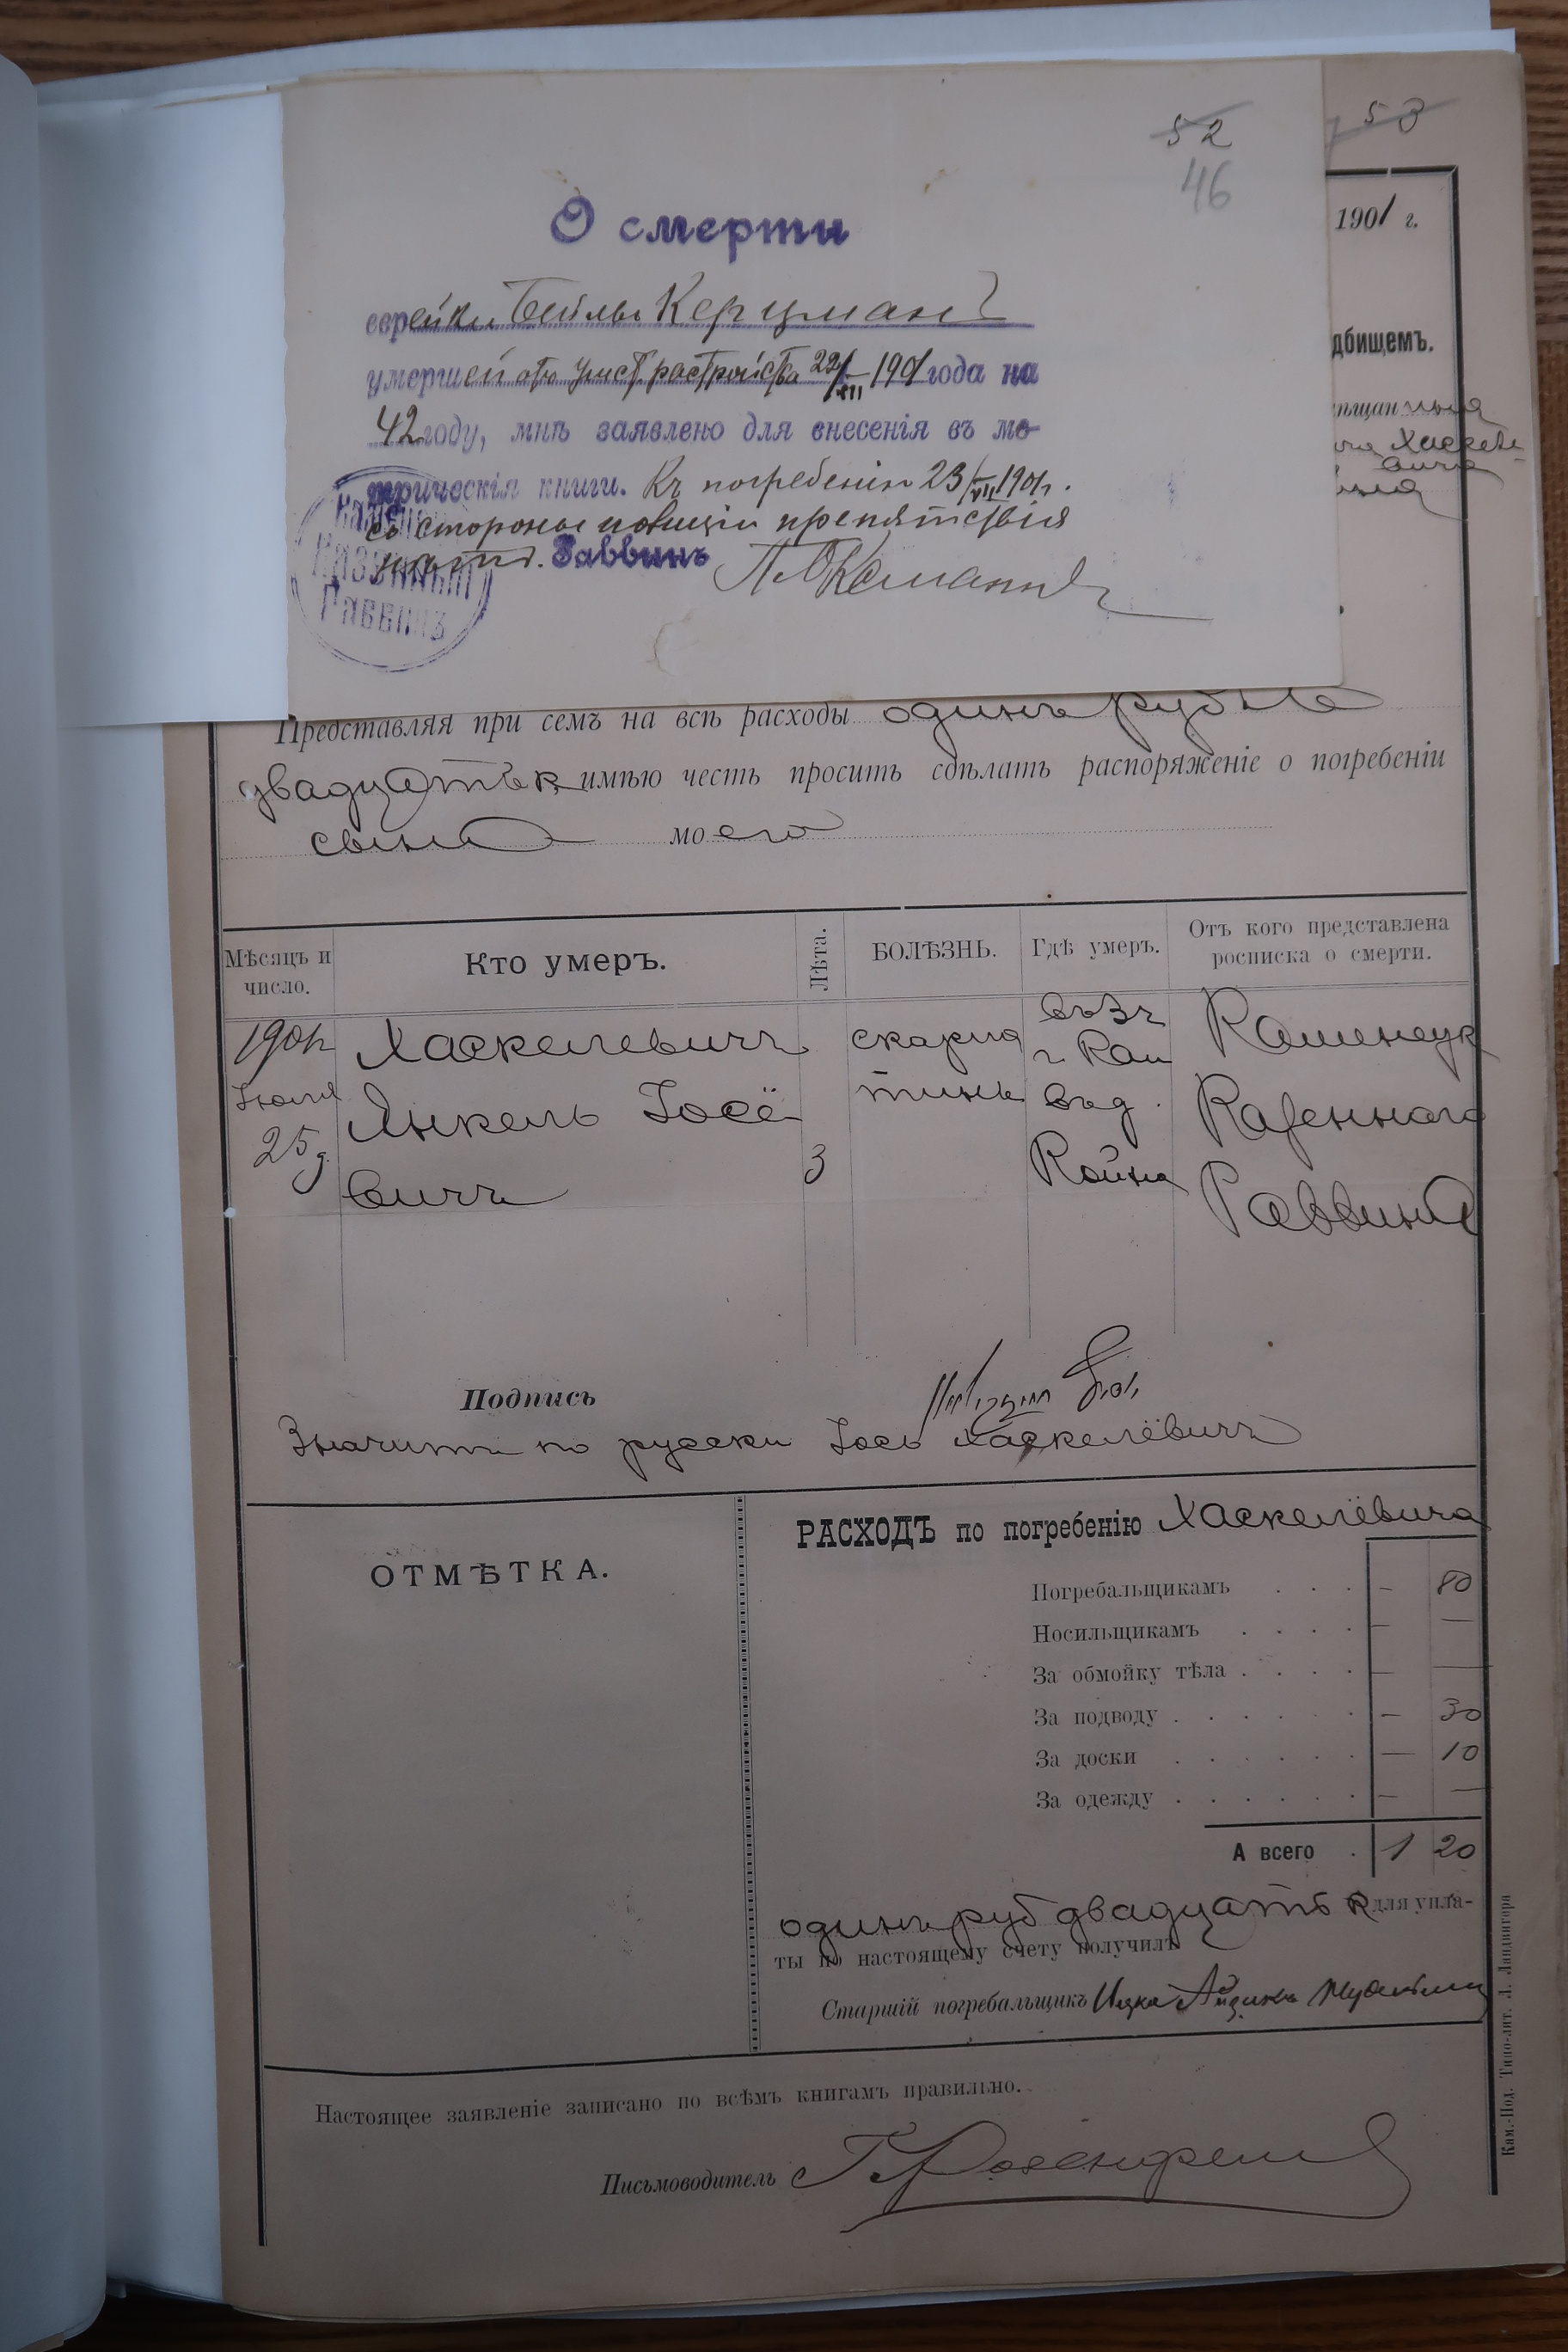 52
46
О смерти
еврейки Бейлы Керцманъ
умершей отъ умст. растройства 22/VII 1901 года на
42 году, мнѣ заявлено для внесенія въ ме-
трическія книги. Къ погребенію 23/VII 1901 г.
со стороны полиціи препятствія
нѣтъ. Раввинъ
Казенный
Раввинъ
53
1901 г.
дбищемъ.
ѣщан
Хаскеле-
вича
Представляя при семъ на всѣ расходы одинъ рубль
двадцать к имѣю честь просить сдѣлать распоряженіе о погребеніи
сына моего
Мѣсяцъ и число.
Кто умеръ.
Лѣта.
БОЛѢЗНЬ.
Гдѣ умеръ.
Отъ кого представлена росписка о смерти.
1901 г
Іюля
25 д
Хаскелевичъ
Янкель Іосё
вичъ
3
скарла
тинъ
г Кам
въ д.
Каменецк
Казеннаго
Раввина
Подпись
Значитъ по русски Іось Хаскелёвичъ
ОТМѢТКА.
РАСХОДЪ по погребенію Хаскелёвича
Погребальщикамъ . . . – 80
Носильщикамъ . . . . – —
За обмойку тѣла . . . . — —
За подводу . . . . . . – 30
За доски . . . . . . — 10
За одежду . . . . . . — —
А всего . 1 20
одинъ руб двадцать к для упла-
ты по настоящему счету получилъ
Старшій погребальщикъ Ицко Айзикъ
Настоящее заявленіе записано по всѣмъ книгамъ правильно.
Письмоводитель Розенфельд
Кам.-Под. Типо-лит. Л. Ландвигера